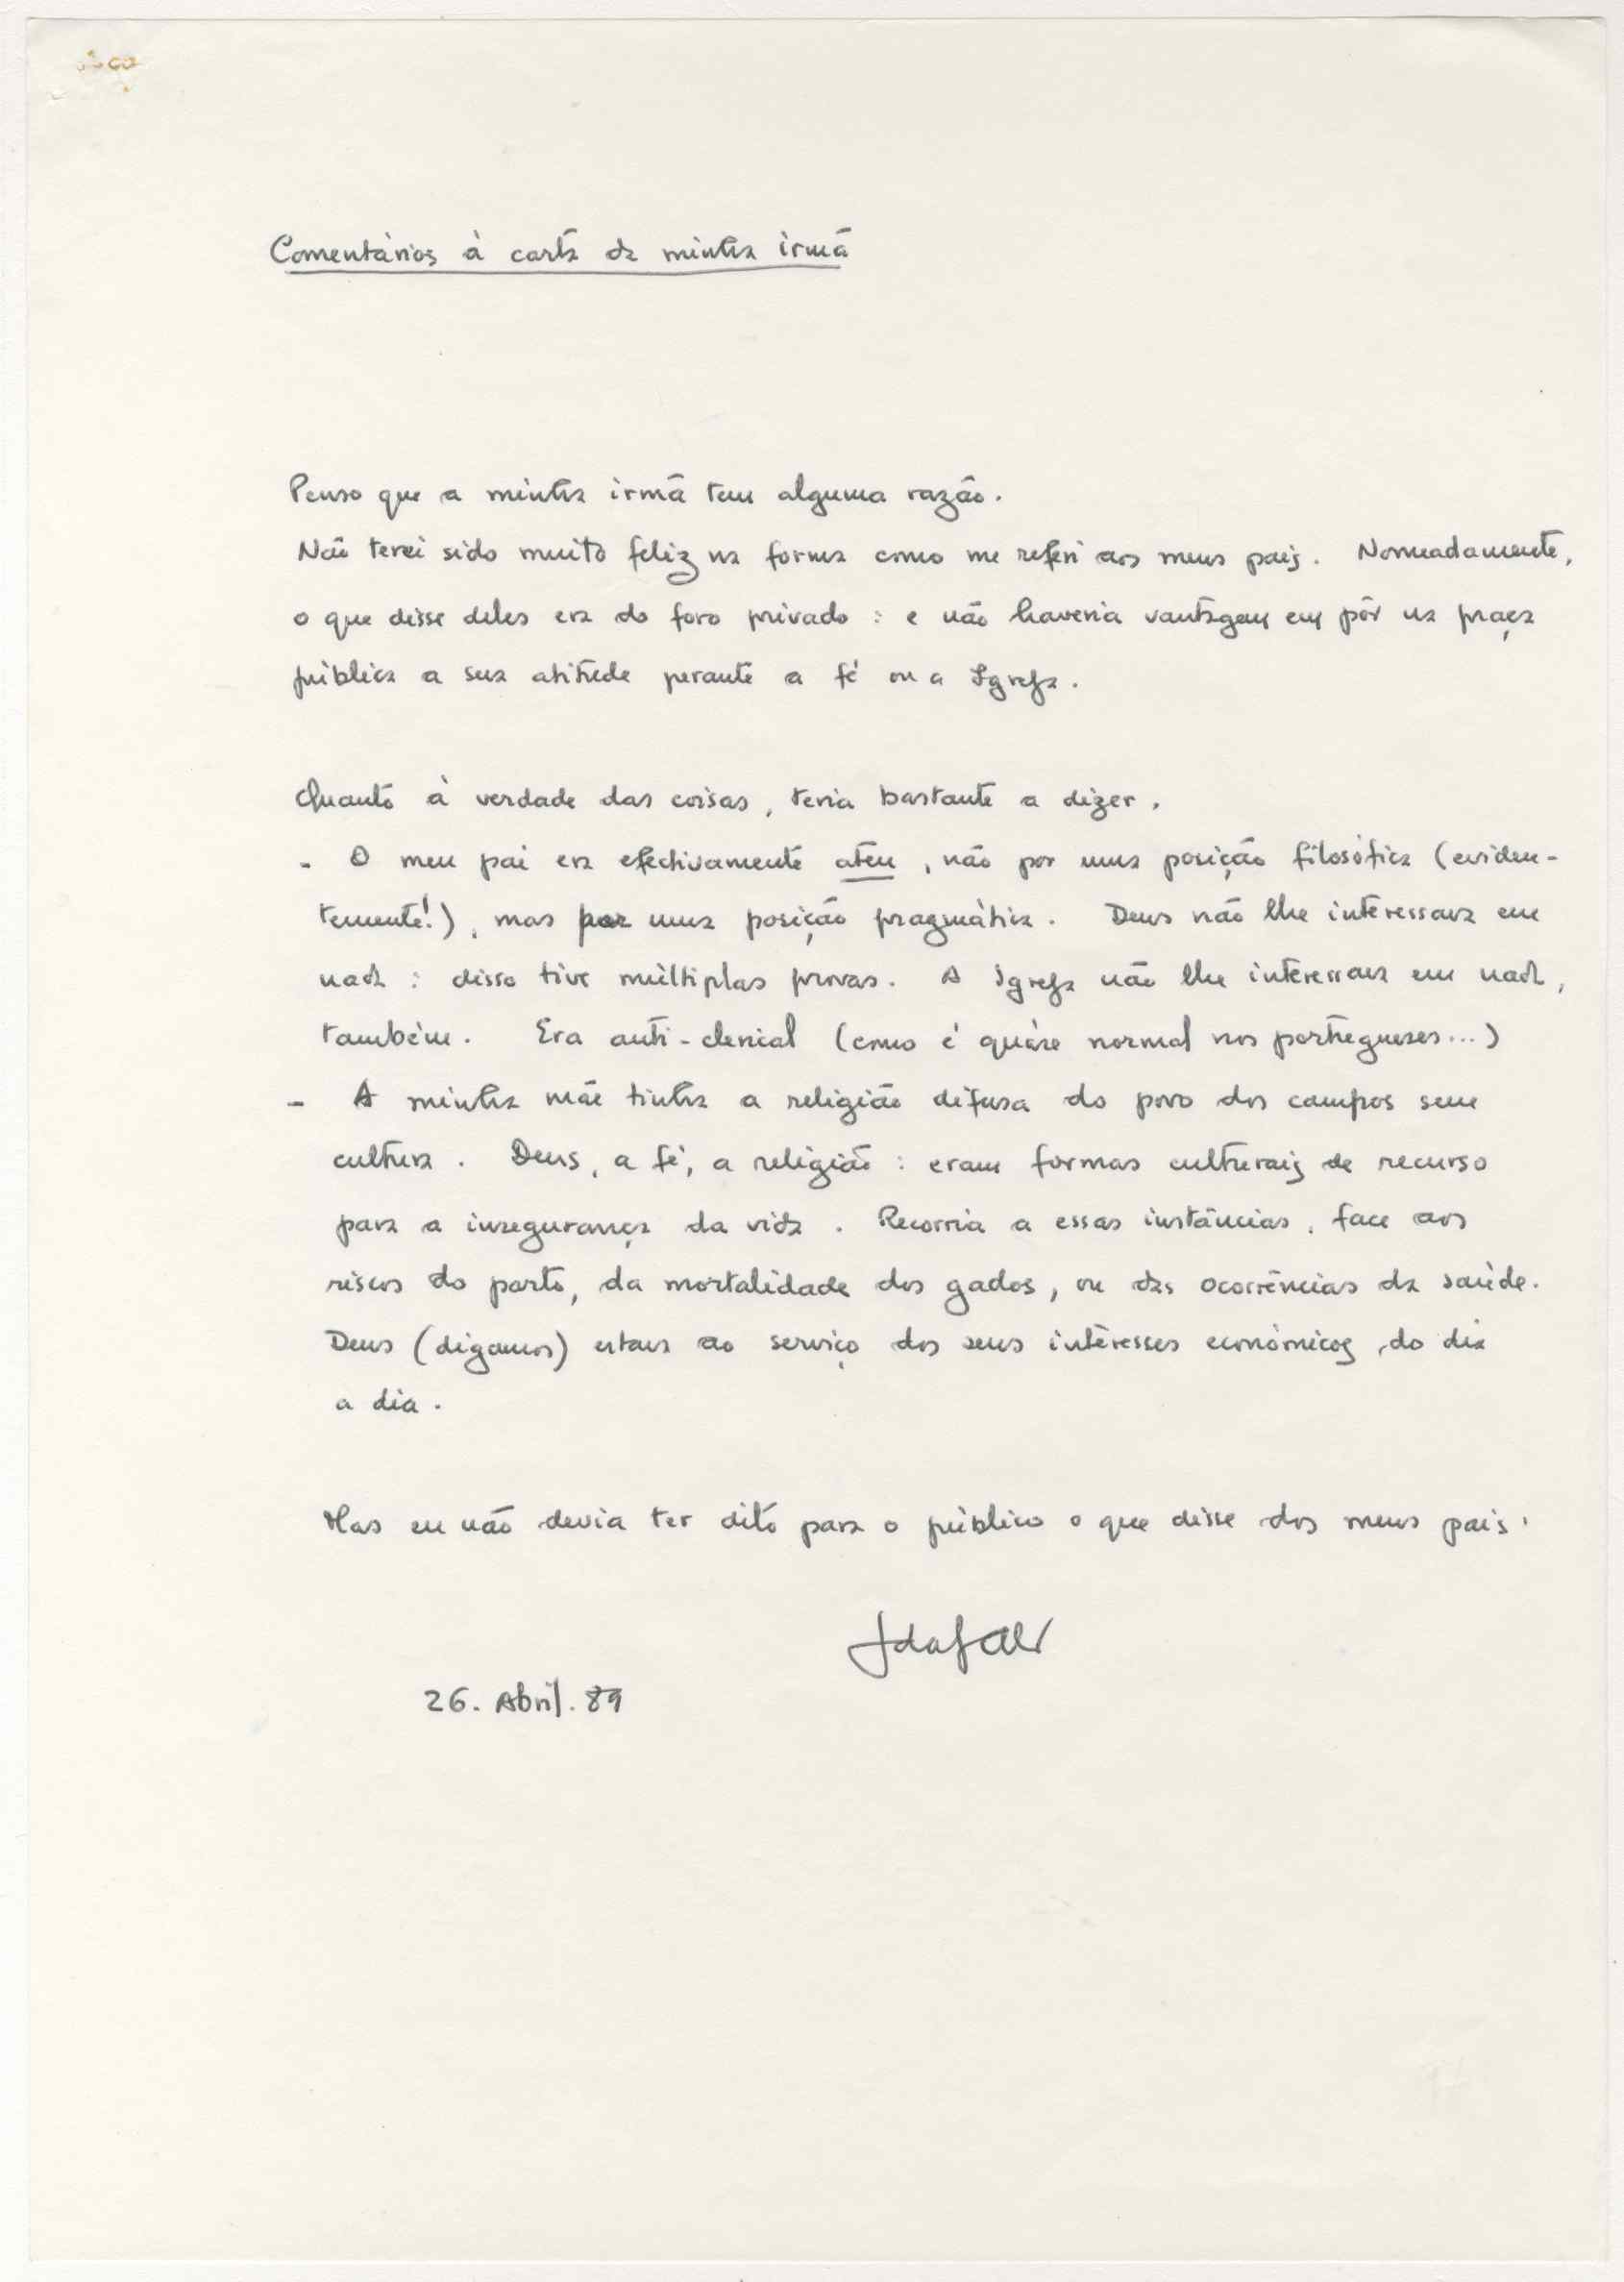 Comentários à carta da minha irmã
Penso que a minha irmã tem alguma razão.
Não terei sido muito feliz na forma como me referi aos meus pais. Nomeadamente,
o que disse deles era do foro privado : e não haveria vantagem em pôr na praça
pública a sua atitude perante a fé ou a Igreja.
Quanto à verdade das coisas, teria bastante a dizer.
- O meu pai era efectivamente ateu, não por uma posição filosófica (eviden-
temente!), mas por uma posição pragmática. Deus não lhe interessava em
nada : disso tive múltiplas provas. A Igreja não lhe interessava em nada,
também. Era anti-clerical (como é quáse normal nos portugueses...)
- A minha mãe tinha a religião difusa do povo dos campos sem
cultura. Deus, a fé, a religião : eram formas culturais de recurso
para a insegurança da vida. Recorria a essas instâncias, face aos
riscos do parto, da mortalidade dos gados, ou das ocorrências da saúde.
Deus (digamos) estava ao serviço dos seus interesses económicos, do dia
a dia.
Mas eu não devia ter dito para o público o que disse dos meus pais.
26. Abril. 89